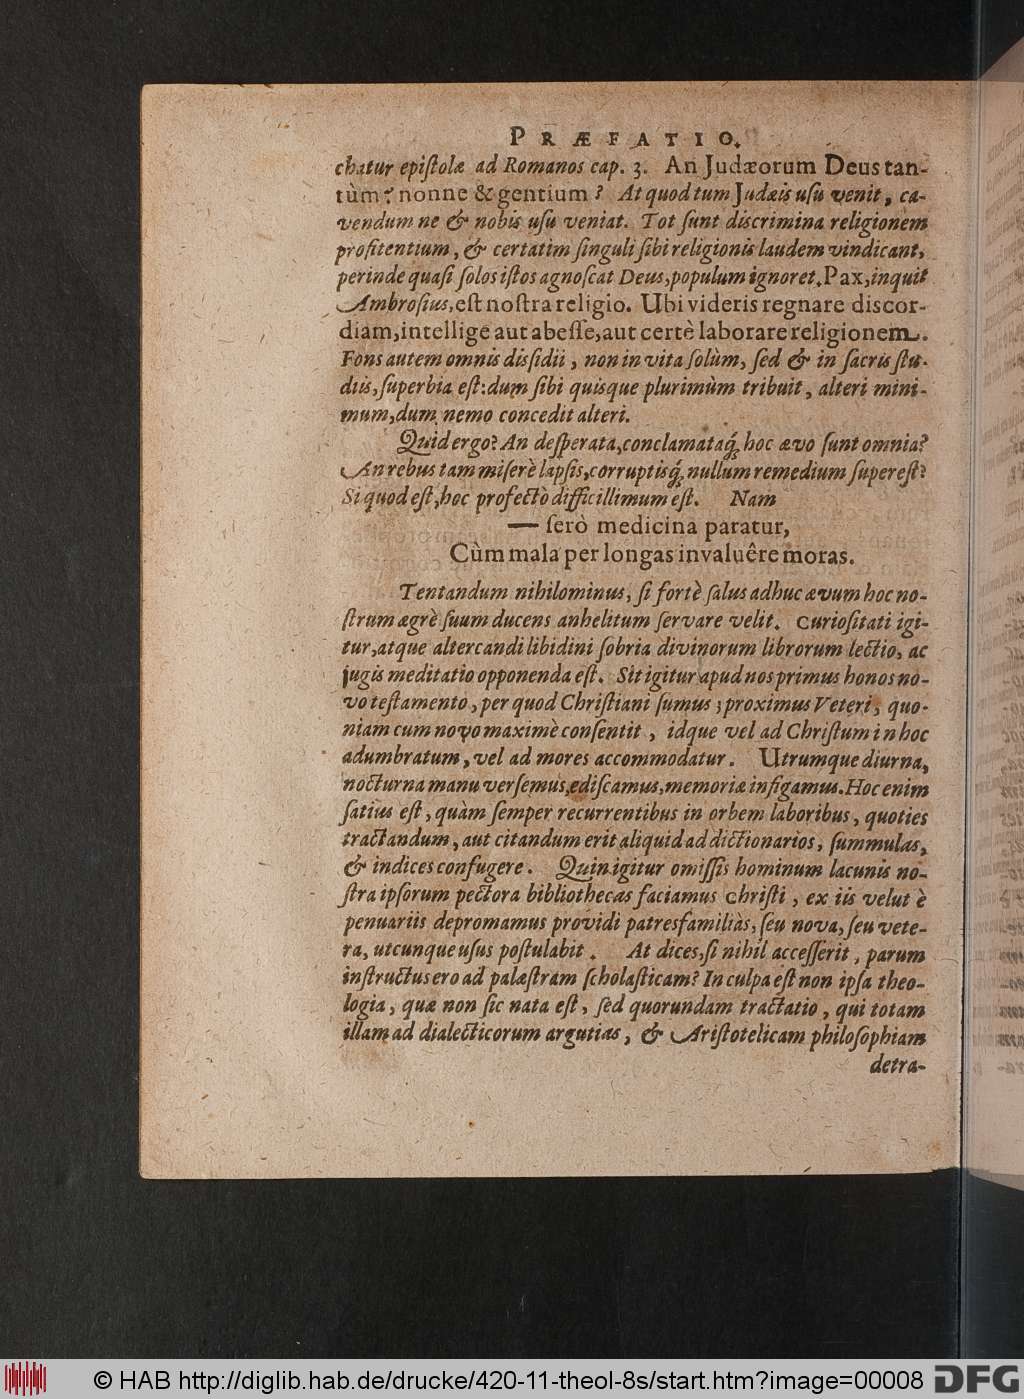 PRÆFATIO.
chatur epiſtolæ ad Romanos cap. 3. An Judæorum Deus tan-
tùm? nonne & gentium? At quod tum Judæis uſu venit, ca-
vendum ne & nobis uſu veniat. Tot ſunt discrimina religionem
profitentium, & certatim ſinguli ſibi religionis laudem vindicant,
perinde quaſi ſolos iſtos agnoſcat Deus, populum ignoret. Pax, inquit
Ambroſius, eſt noſtra religio. Ubi videris regnare discor-
diam, intellige aut abeſſe, aut certè laborare religionem.
Fons autem omnis disſidii, non in vita ſolùm, ſed & in ſacris ſtu-
diis, ſuperbia eſt: dum ſibi quisque plurimùm tribuit, alteri mini-
mum, dum nemo concedit alteri.
Quid ergo? An deſperata, conclamataq́; hoc ævo ſunt omnia?
An rebus tam miſerè lapſis, corruptisq́; nullum remedium ſupereſt?
Si quod eſt, hoc profectò difficillimum eſt. Nam
— ſerò medicina paratur,
Cùm mala per longas invaluêre moras.
Tentandum nihilominus, ſi fortè ſalus adhuc ævum hoc no-
ſtrum ægrè ſuum ducens anhelitum ſervare velit. Curioſitati igi-
tur, atque altercandi libidini ſobria divinorum librorum lectio, ac
jugis meditatio opponenda eſt. Sit igitur apud nos primus honos no-
vo teſtamento, per quod Chriſtiani ſumus; proximus Veteri, quo-
niam cum novo maximè conſentit, idque vel ad Chriſtum in hoc
adumbratum, vel ad mores accommodatur. Utrumque diurna,
nocturna manu verſemus, ediſcamus, memoriæ infigamus. Hoc enim
ſatius eſt, quàm ſemper recurrentibus in orbem laboribus, quoties
tractandum, aut citandum erit aliquid ad dictionarios, ſummulas,
& indices confugere. Quin igitur omiſſis hominum lacunis no-
ſtra ipſorum pectora bibliothecas faciamus Chriſti, ex iis velut è
penuariis depromamus providi patresfamiliàs, ſeu nova, ſeu vete-
ra, utcunque uſus poſtulabit. At dices, ſi nihil acceſſerit, parum
inſtructus ero ad palæſtram ſcholaſticam? In culpa eſt non ipſa theo-
logia, quæ non ſic nata eſt, ſed quorundam tractatio, qui totam
illam ad dialecticorum argutias, & Ariſtotelicam philoſophiam
detra-
© HAB http://diglib.hab.de/drucke/420-11-theol-8s/start.htm?image=00008 DFG